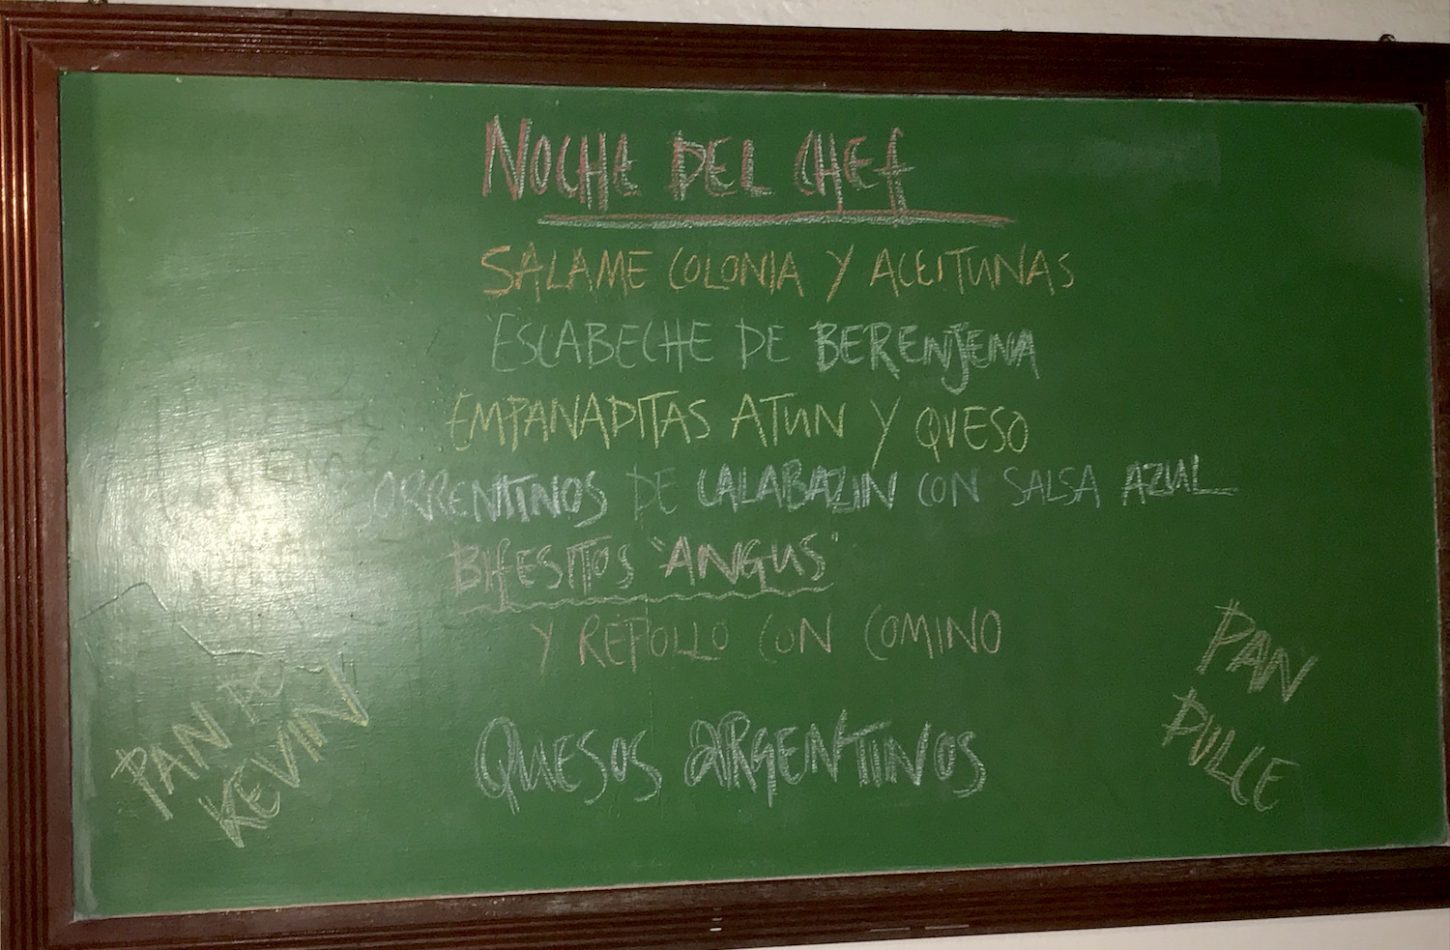 NOCHE DEL CHEF
SALAME COLONIA Y ACEITUNAS
ESCABECHE DE BERENJENA
EMPANADITAS ATUN Y QUESO
SORRENTINOS DE CALABAZIN CON SALSA AZUL
BIFESITOS "ANGUS"
Y REPOLLO CON COMINO
QUESOS ARGENTINOS
PAN DE
KEVIN
PAN
DULCE